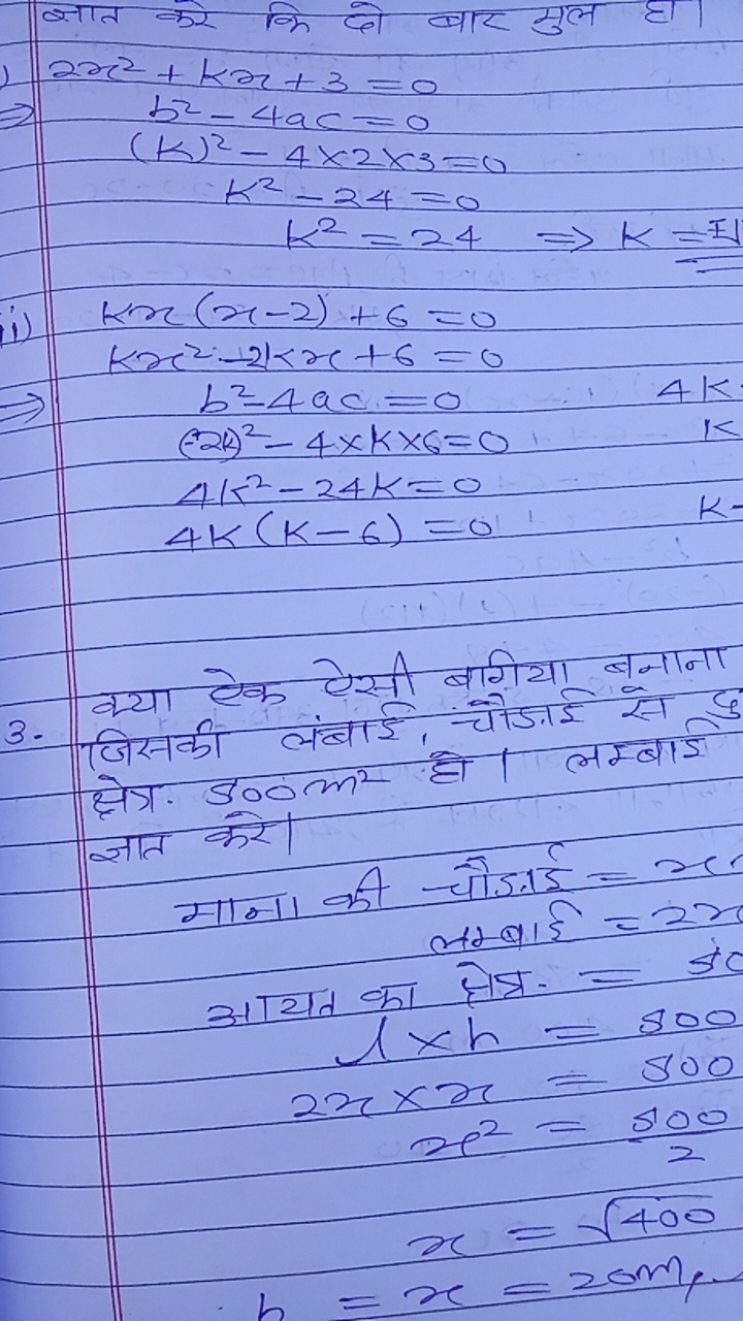 ज्ञात करे कि दो बार मुल हो।
) 2x² + kx + 3 = 0
⇒ b² - 4ac = 0
(k)² - 4×2×3 = 0
k² - 24 = 0
k² = 24 ⇒ k = ±
ii) kx(x-2) + 6 = 0
kx² - 2kx + 6 = 0
⇒ b² - 4ac = 0 4k
(-2k)² - 4×k×6 = 0 k
4k² - 24k = 0
4k(k-6) = 0 k-
क्या ऐक ऐसी बगिया बनाना
3. जिसकी लंबाई, चौड़ाई से दु
क्षेत्र. 800m² हो। लम्बाई
ज्ञात करे।
माना की चौड़ाई = x
लम्बाई = 2x
आयत का क्षेत्र. = 80
l × b = 800
2x × x = 800
x² = 800/2
x = √400
b = x = 20m,